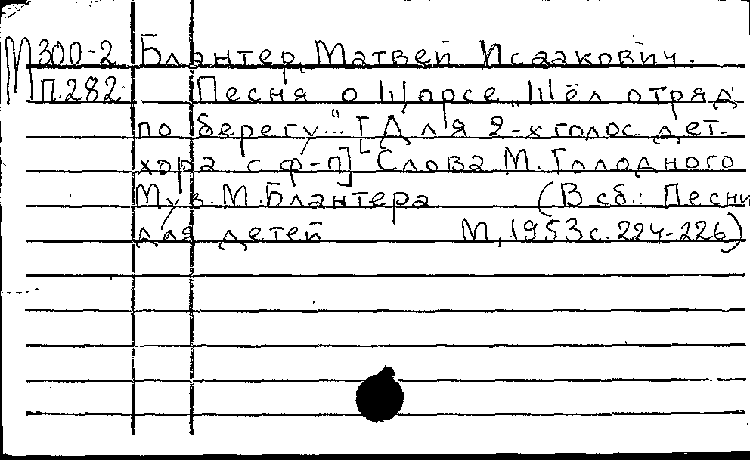 М300-2 Блантер, Матвей Исаакович.
П.282 Песня о Щорсе „Шёл отряд
по берегу..." [Для 2-х голос. дет.
хора с ф-п] Слова М. Голодного
Муз. М. Блантера (В сб.: Песни
для детей М, 1953 с. 224-226)